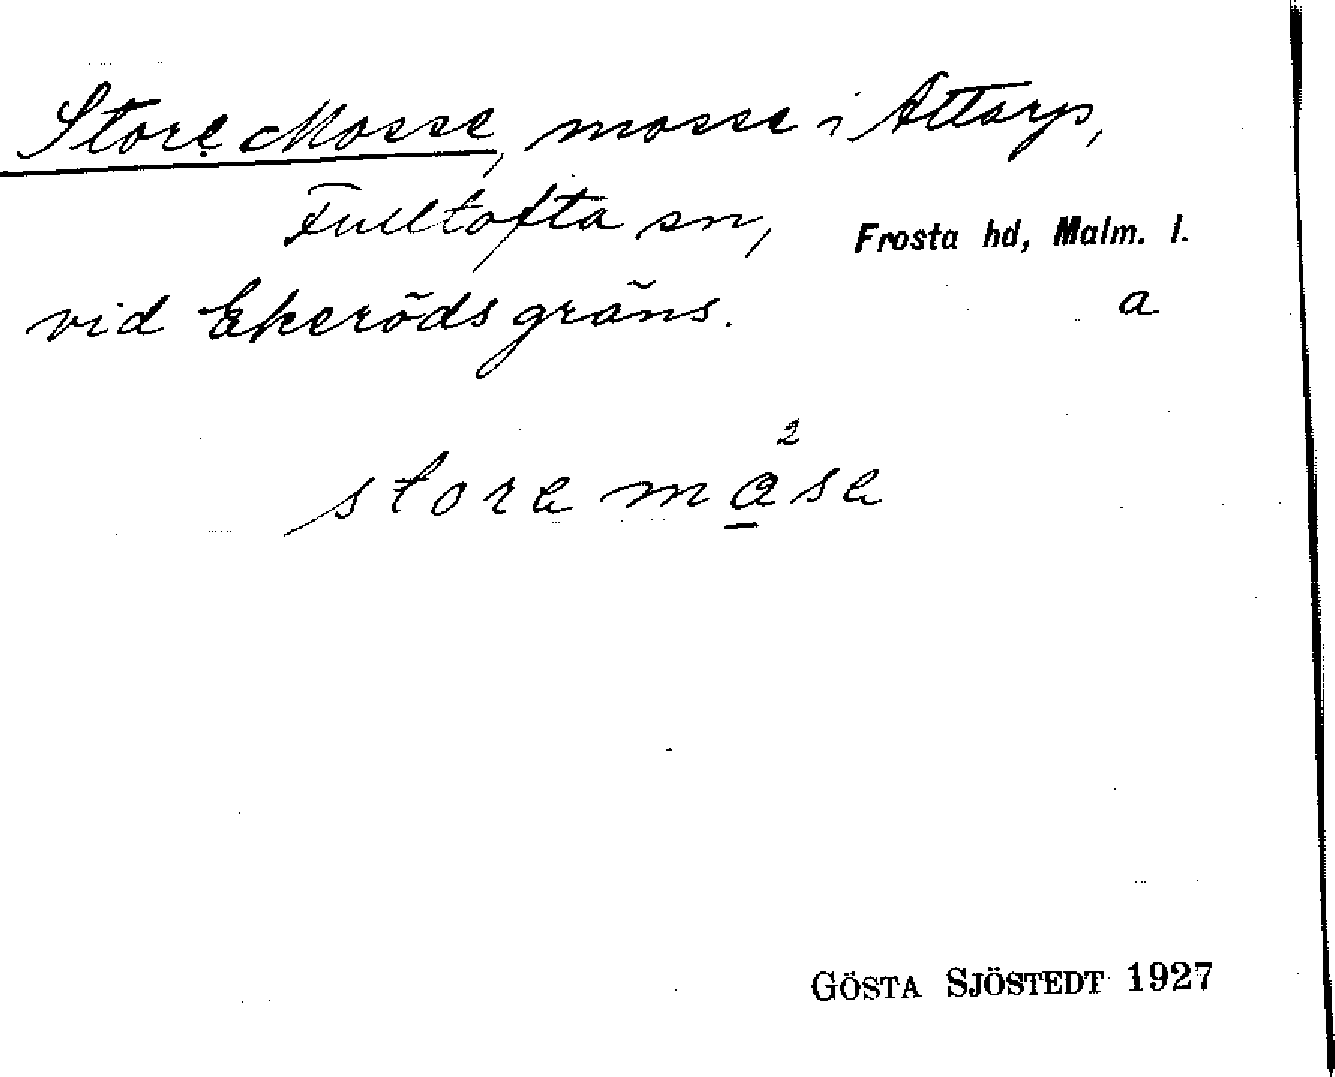 Store Mosse, mosse i Attarp,
Fulltofta sn, Frosta hd, Malm. l.
vid Ekeröds gräns. a
2
store måse
GÖSTA SJÖSTEDT 1927